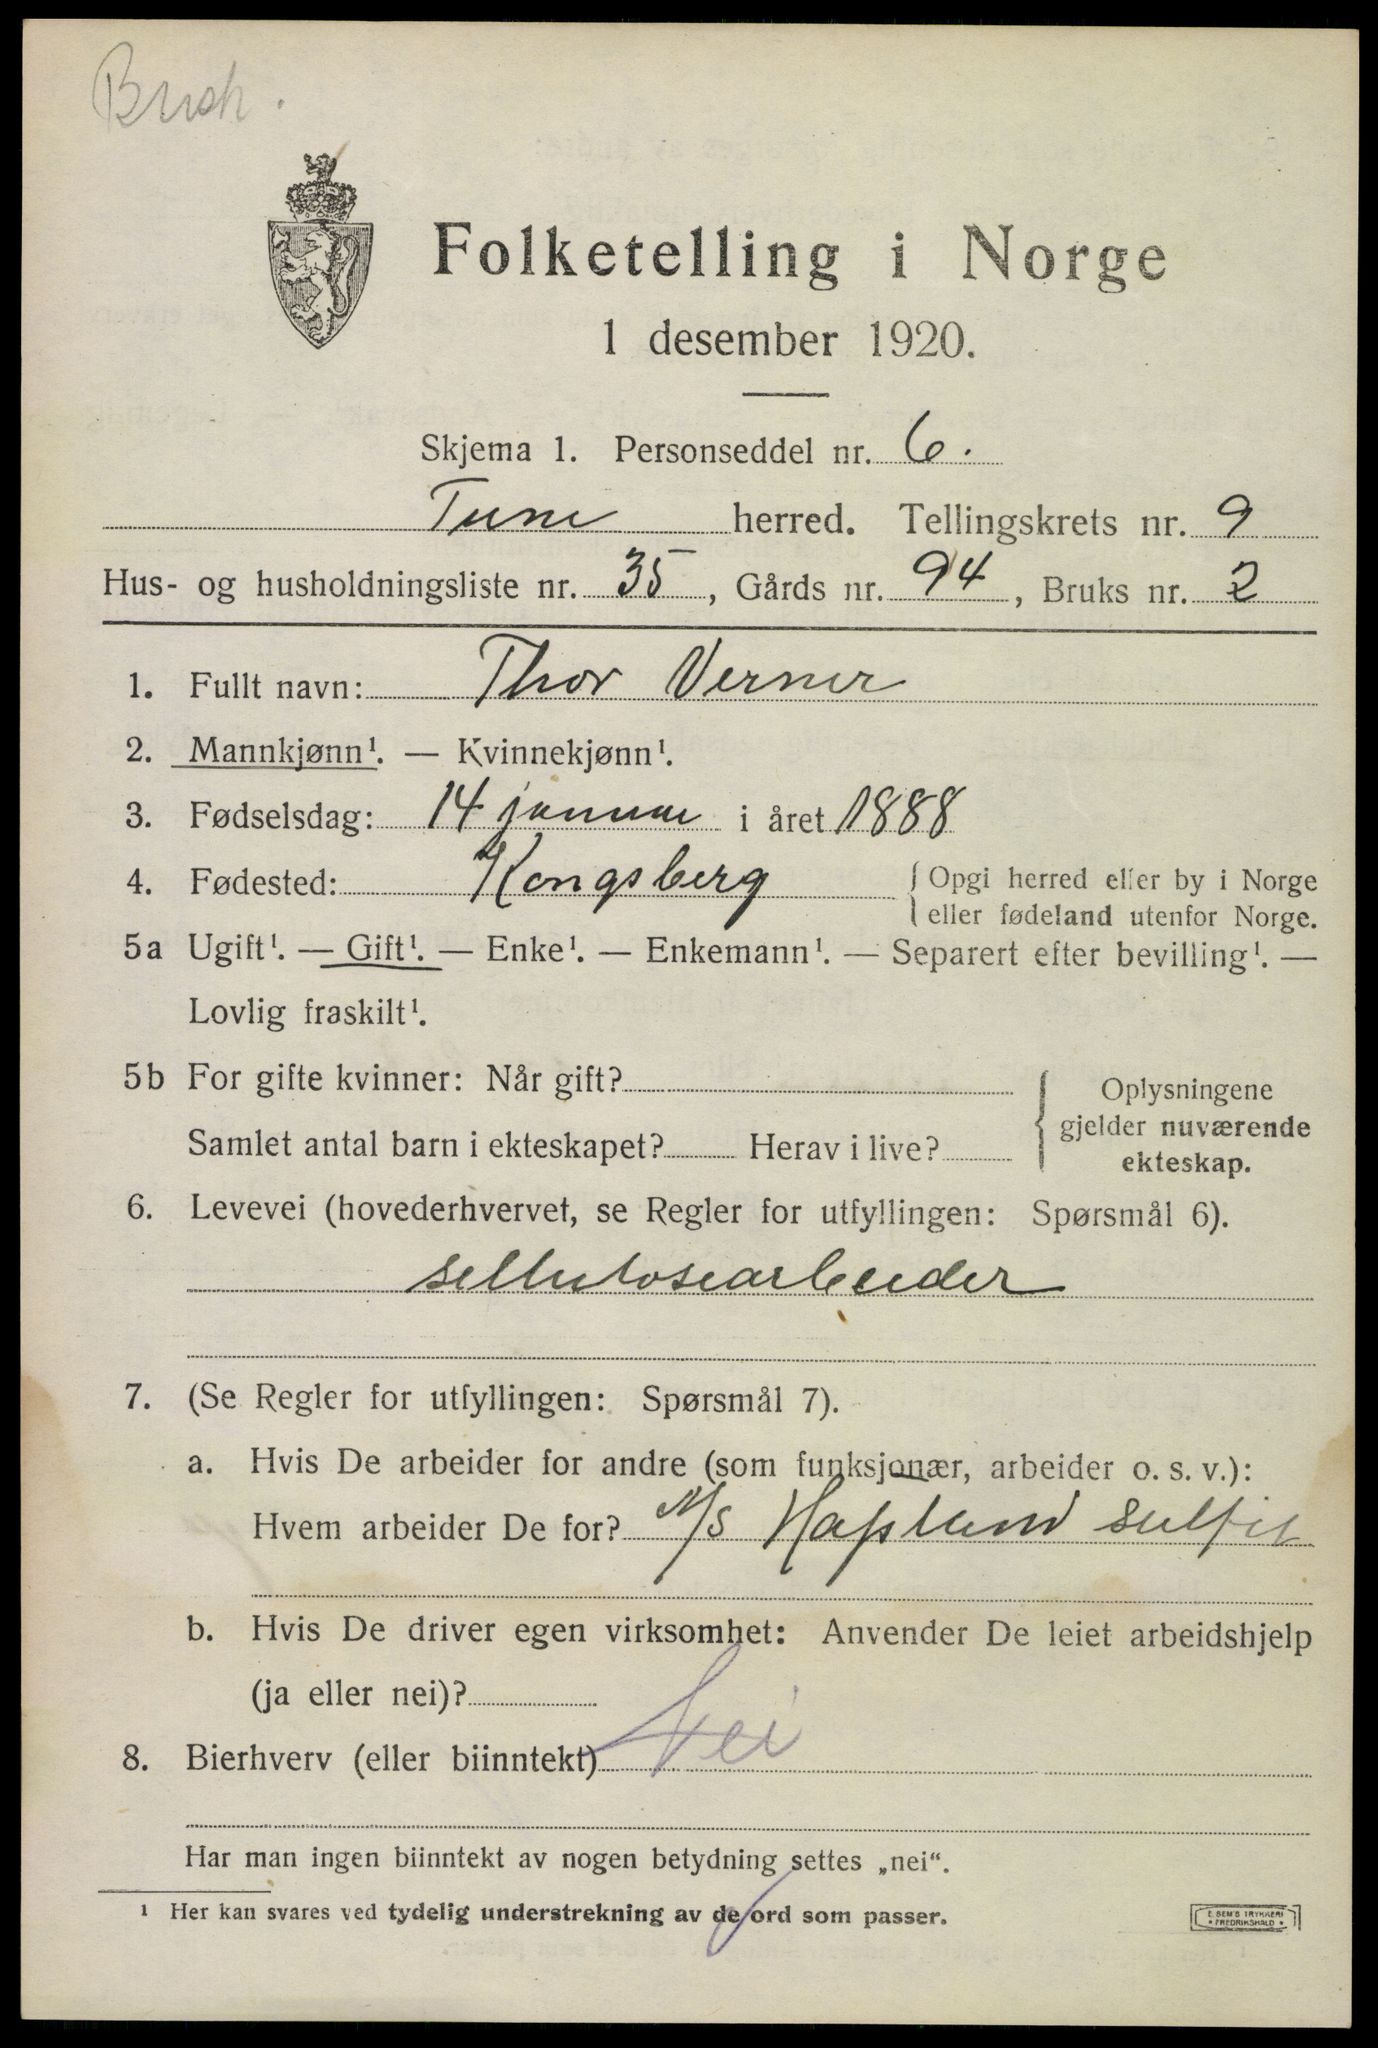 Busk.
Folketelling i Norge
1 desember 1920.
Skjema 1. Personseddel nr. 6.
Tune herred. Tellingskrets nr. 9
Hus- og husholdningsliste nr. 35, Gårds nr. 94, Bruks nr. 2
1. Fullt navn: Thor Verner
2. Mannkjønn¹. — Kvinnekjønn¹.
3. Fødselsdag: 14 januar i året 1888
4. Fødested: Kongsberg { Opgi herred eller by i Norge
eller fødeland utenfor Norge.
5a Ugift¹. — Gift¹. — Enke¹. — Enkemann¹. — Separert efter bevilling¹. —
Lovlig fraskilt¹.
5b For gifte kvinner: Når gift?
Samlet antal barn i ekteskapet? Herav i live?
Oplysningene
gjelder nuværende
ekteskap.
6. Levevei (hovederhvervet, se Regler for utfyllingen: Spørsmål 6).
sellulosearbeider
7. (Se Regler for utfyllingen: Spørsmål 7).
a. Hvis De arbeider for andre (som funksjonær, arbeider o. s. v.):
Hvem arbeider De for? A/s Hafslund sulfit
b. Hvis De driver egen virksomhet: Anvender De leiet arbeidshjelp
(ja eller nei)?
8. Bierhverv (eller biinntekt) Nei
Har man ingen biinntekt av nogen betydning settes „nei“.
¹ Her kan svares ved tydelig understrekning av de ord som passer.
E. SEM'S TRYKKERI
• FREDRIKSHALD •